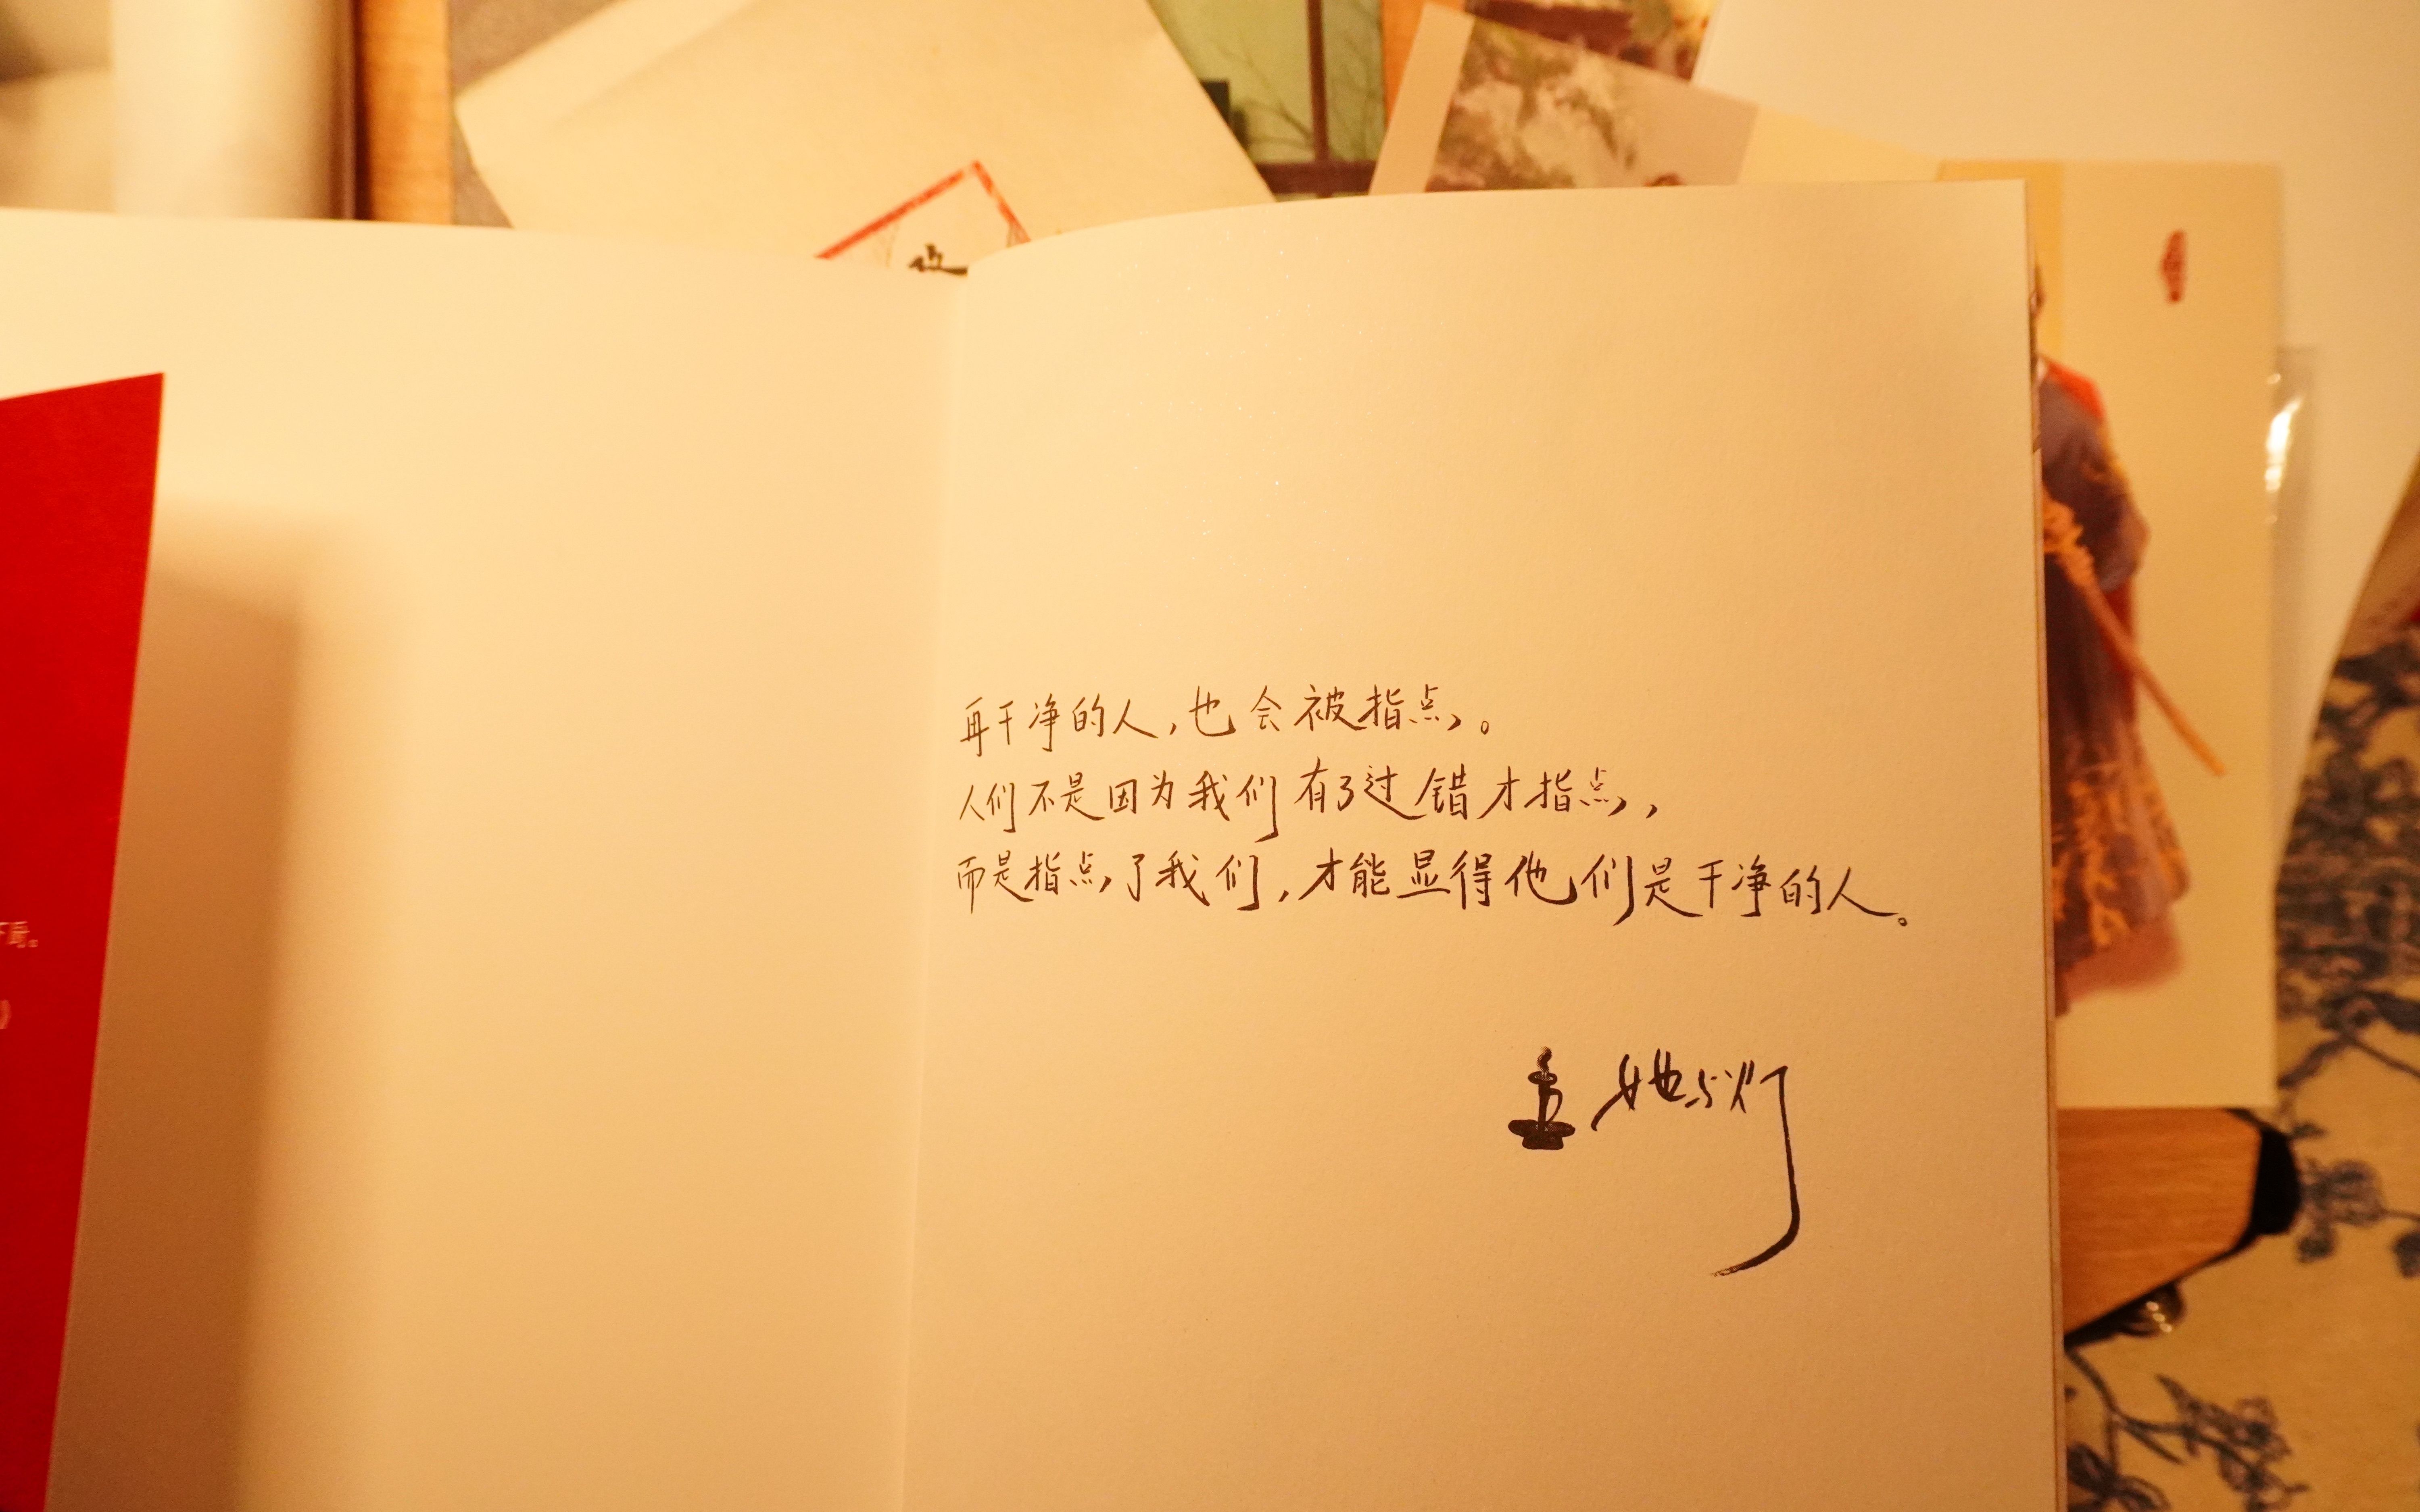 再干净的人，也会被指点。
人们不是因为我们有了过错才指点，
而是指点了我们，才能显得他们是干净的人。
她与灯